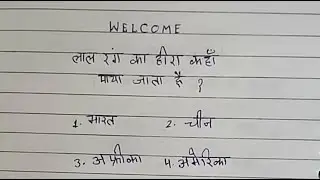 WELCOME
लाल रंग का हीरा कहाँ
पाया जाता है ?
1. भारत 2. चीन
3. अफ्रीका 4. अमेरिका